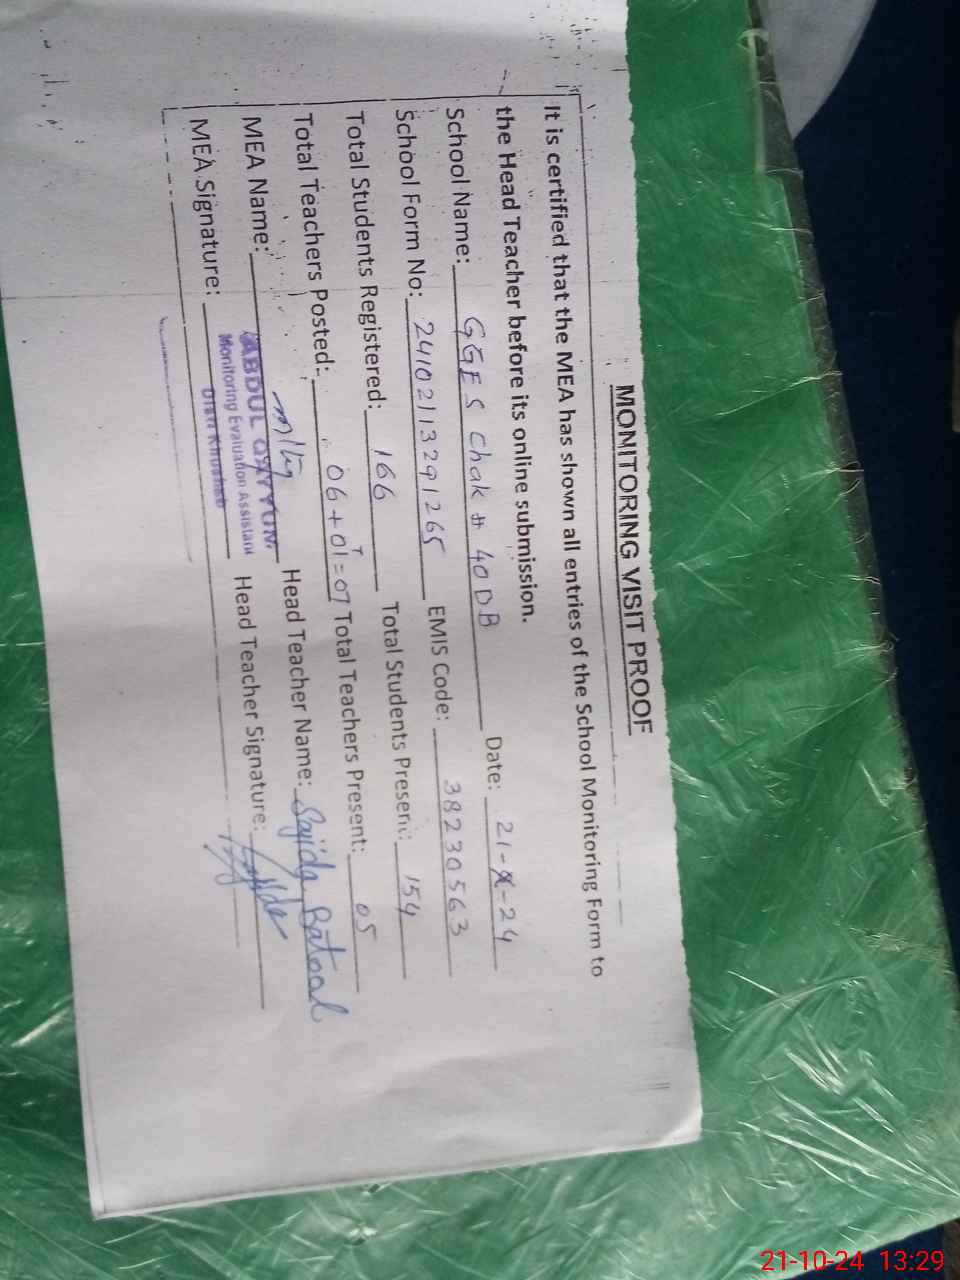 MONITORING VISIT PROOF
It is certified that the MEA has shown all entries of the School Monitoring Form to
the Head Teacher before its online submission.
School Name: GGES Chak # 40 DB Date: 21-X-24
School Form No: 24102113291265 EMIS Code: 38230563
Total Students Registered: 166 Total Students Present: 154
Total Teachers Posted: 06+01=07 Total Teachers Present: 05
MEA Name: ABDUL QAYYUM Head Teacher Name: Sajida Batool
Monitoring Evaluation Assistant
Distt Khushab
MEA Signature: Head Teacher Signature:
21-10-24 13:29